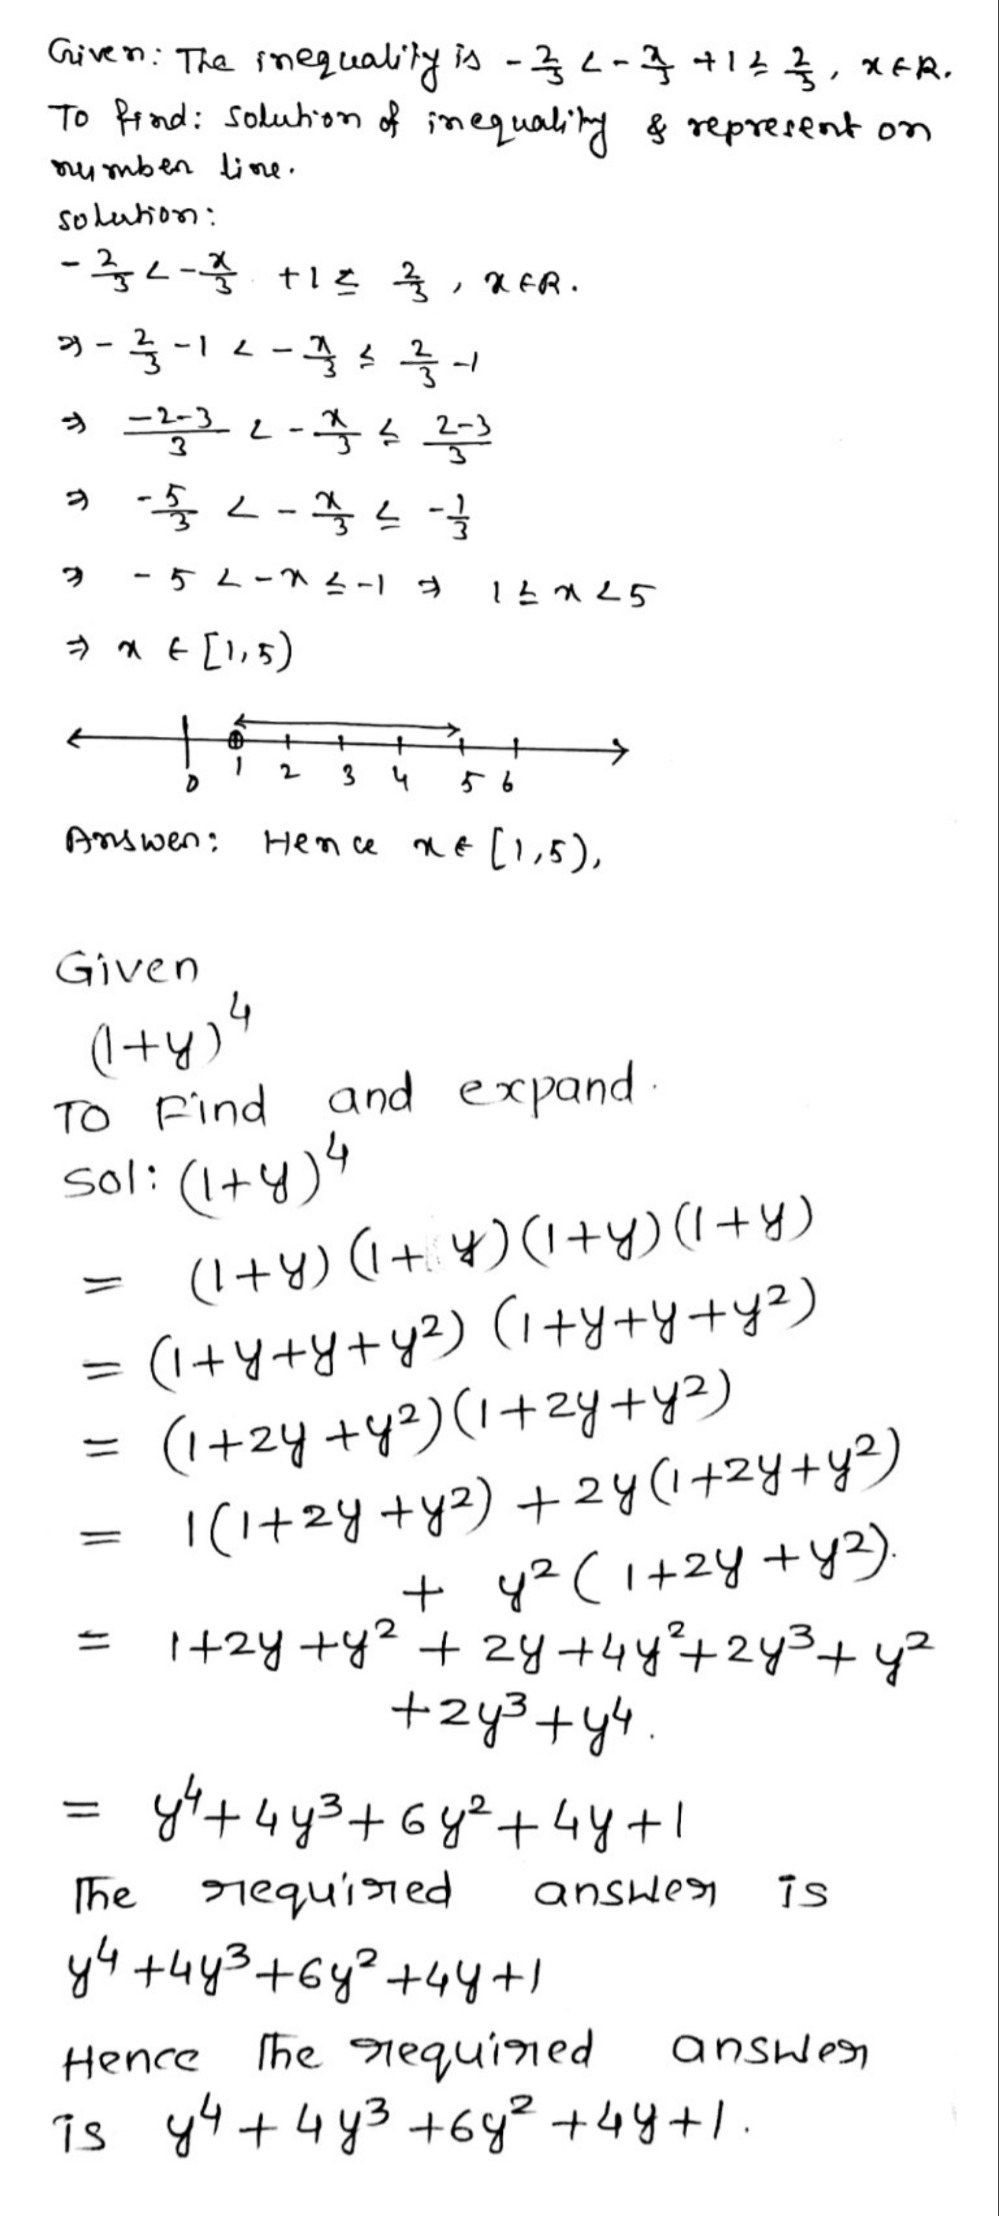 Given: The inequality is -2/3 < -x/3 + 1 ≤ 2/3, x ∈ R.
To find: solution of inequality & represent on
number line.
solution:
-2/3 < -x/3 + 1 ≤ 2/3, x ∈ R.
⇒ -2/3 - 1 < -x/3 ≤ 2/3 - 1
⇒ (-2-3)/3 < -x/3 ≤ (2-3)/3
⇒ -5/3 < -x/3 ≤ -1/3
⇒ -5 < -x ≤ -1 ⇒ 1 ≤ x < 5
⇒ x ∈ [1,5)
0 1 2 3 4 5 6
Answer: Hence x ∈ [1,5),
Given
(1+y)^4
To Find and expand.
Sol: (1+y)^4
= (1+y) (1+y) (1+y) (1+y)
= (1+y+y+y²) (1+y+y+y²)
= (1+2y+y²)(1+2y+y²)
= 1(1+2y+y²) + 2y(1+2y+y²)
+ y²(1+2y+y²).
= 1+2y+y² + 2y+4y²+2y³+y²
+2y³+y⁴.
= y⁴+4y³+6y²+4y+1
The required answer is
y⁴+4y³+6y²+4y+1
Hence The required answer
is y⁴+4y³+6y²+4y+1.